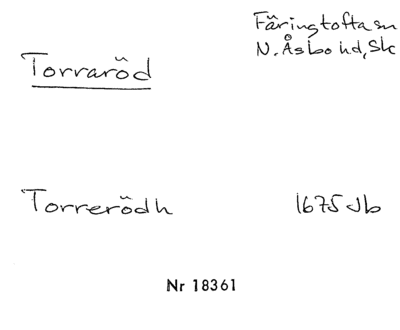 Färingtofta sn
Torraröd
N. Åsbo hd, Sk
Torrerödh 1675 Jb
Nr 18361